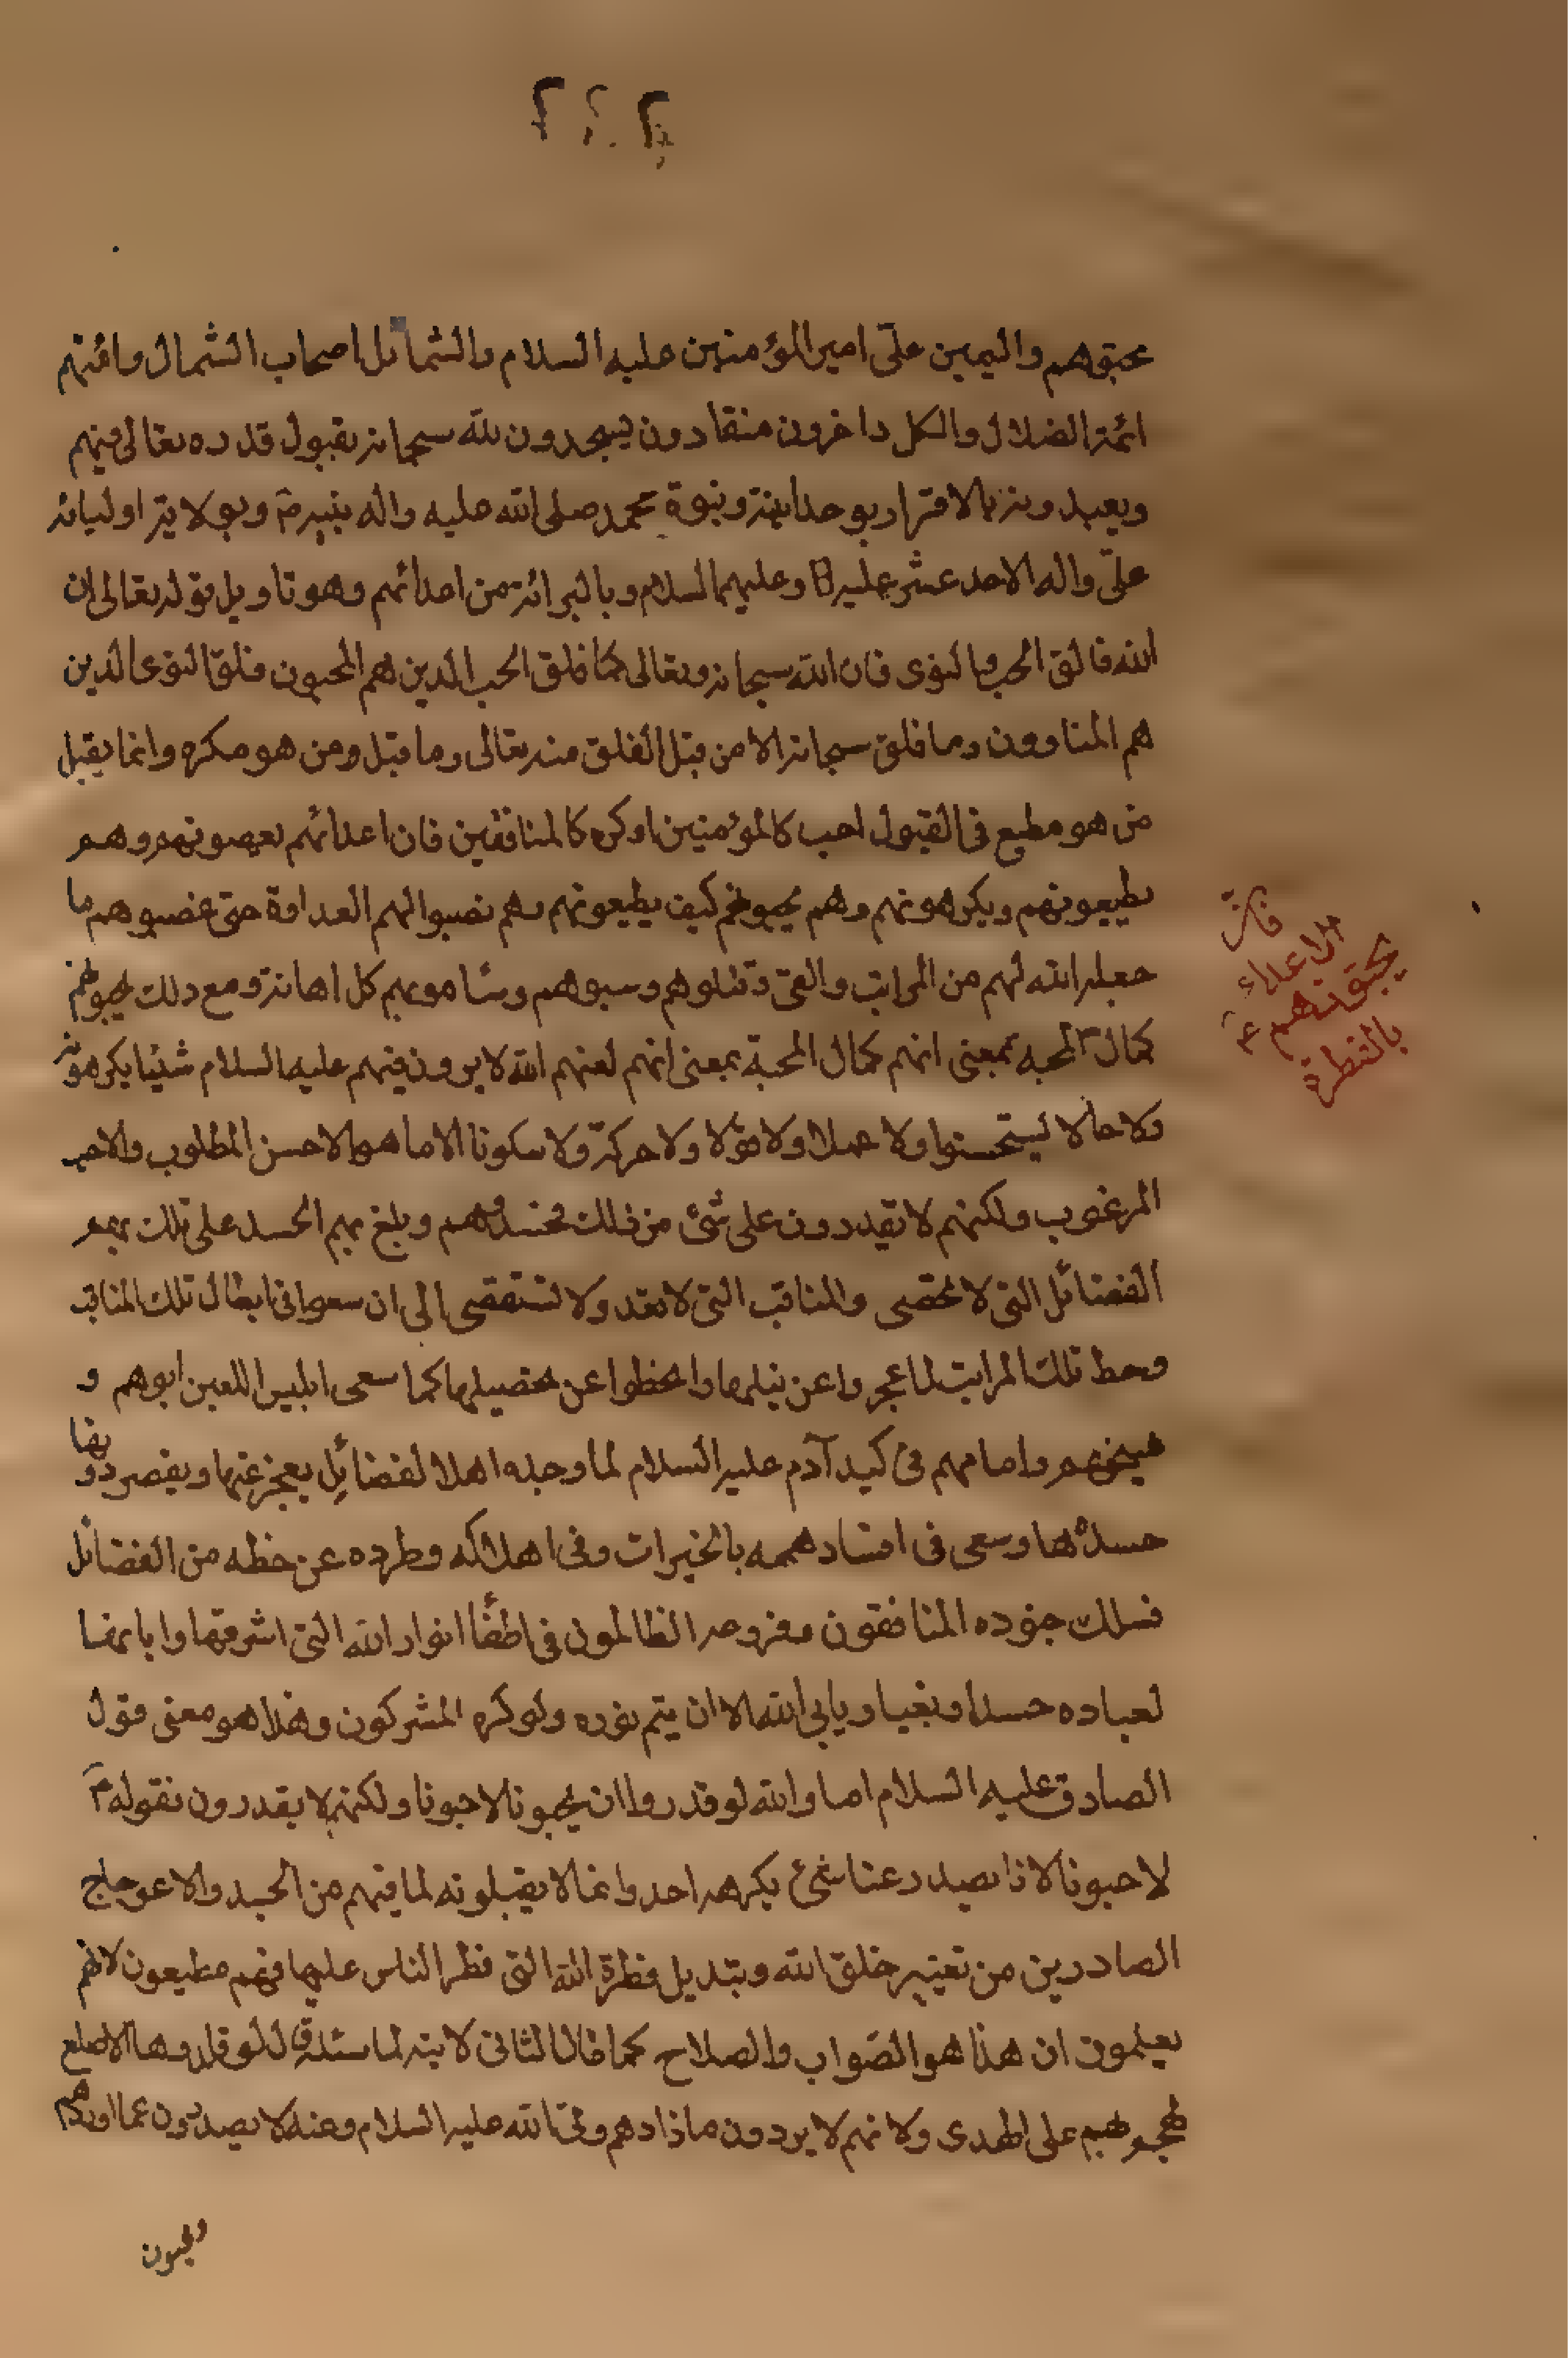 محبوهم واليمين علىّ امير المؤمنين عليه السلام والشمائل اصحاب الشمال وائمتهم
ائمة الضلال والكل داخرون منقادون يسجدون لله سبحانه بقبول قدره تعالى فيهم
ويعبدونه بالاقرار بوحدانيته ونبوة محمد صلى الله عليه واله نبيه وبولاية اوليائه
علىّ واله الاحد عشر عليه وعليهم السلام وبالبرائة من اعدائهم وهو تاويل قوله تعالى ان
الله فالق الحب والنوى فان الله سبحانه وتعالى كما فلق الحب الذين هم المحبون فلق النوى الذين
هم المناوون وما فلق سبحانه الا من قبل الفلق منه تعالى وما قبل ومن هو مكره وانما يقبل
من هو مطيع فى القبول احب كالمؤمنين او كره كالمنافقين فان اعدائهم يعصونهم وهم
يطيعونهم ويكرهونهم وهم يحبونهم كيف يطيعونهم وهم نصبوا لهم العداوة حتى غصبوهم ما
جعله الله لهم من المراتب والفئ وقتلوهم وسبوهم وساموهم كل اهانة ومع ذلك يحبونهم
كمال المحبه بمعنى انهم كمال المحبة بمعنى انهم لعنهم الله لا يرون فيهم عليه السلام شيئا يكرهونه
ولا حالا ليستحسنوا ولا عملا ولا قولا ولا حركة ولا سكونا الا ما هو الاحسن المطلوب والاحب
المرغوب ولكنهم لا يقدرون على شئ من ذلك فحسدوهم وبلغ بهم الحسد على تلك
الفضائل التى لا تحصى والمناقب التى لا تعد ولا تستقصى الى ان سعوا فى ابطال تلك المناقب
وحط تلك المراتب لما عجزوا عن نيلها وانحطوا عن تحصيلها كما سعى ابليس اللعين ابوهم و
شيخهم وامامهم فى كيد آدم عليه السلام لما وجده اهلا لفضائل يعجز عنها ويقصر دونها
حسده ها وسعى فى افساد هممه بالخيرات وفى اهلاكه وطرده عن حظه من الفضائل
فسلك جنوده المنافقون وفروعه الظالمون فى اطفأ انوار الله التى اشرقها وابانها
لعباده حسدا وبغيا ويابى الله الا ان يتم نوره ولو كره المشركون وهذا هو معنى قول
الصادق عليه السلام اما والله لو قدروا ان يحبونا لاحبونا ولكنهم لا يقدرون فقوله ع
لاحبونا لاذا يصدر عنا شئ يكرهه احد وانما لا يقبلونه لما فيهم من الحسد والاعوجاج
الصادرين من تغيير خلق الله وتبديل فطرة الله التى فطر الناس عليها فهم مطيعون لانهم
يعلمون ان هذا هو الصواب والصلاح كما قال الثانى لابنه لما سئله قال لو قلدوها الاصلع
لحملهم على الهدى ولانهم لا يردون ماذادهم ولى الله عليه السلام وعنه لا يصدرون عما اوردهم
ويحبون
فان
الاعداء
يحبونهم ع
بالفطرة